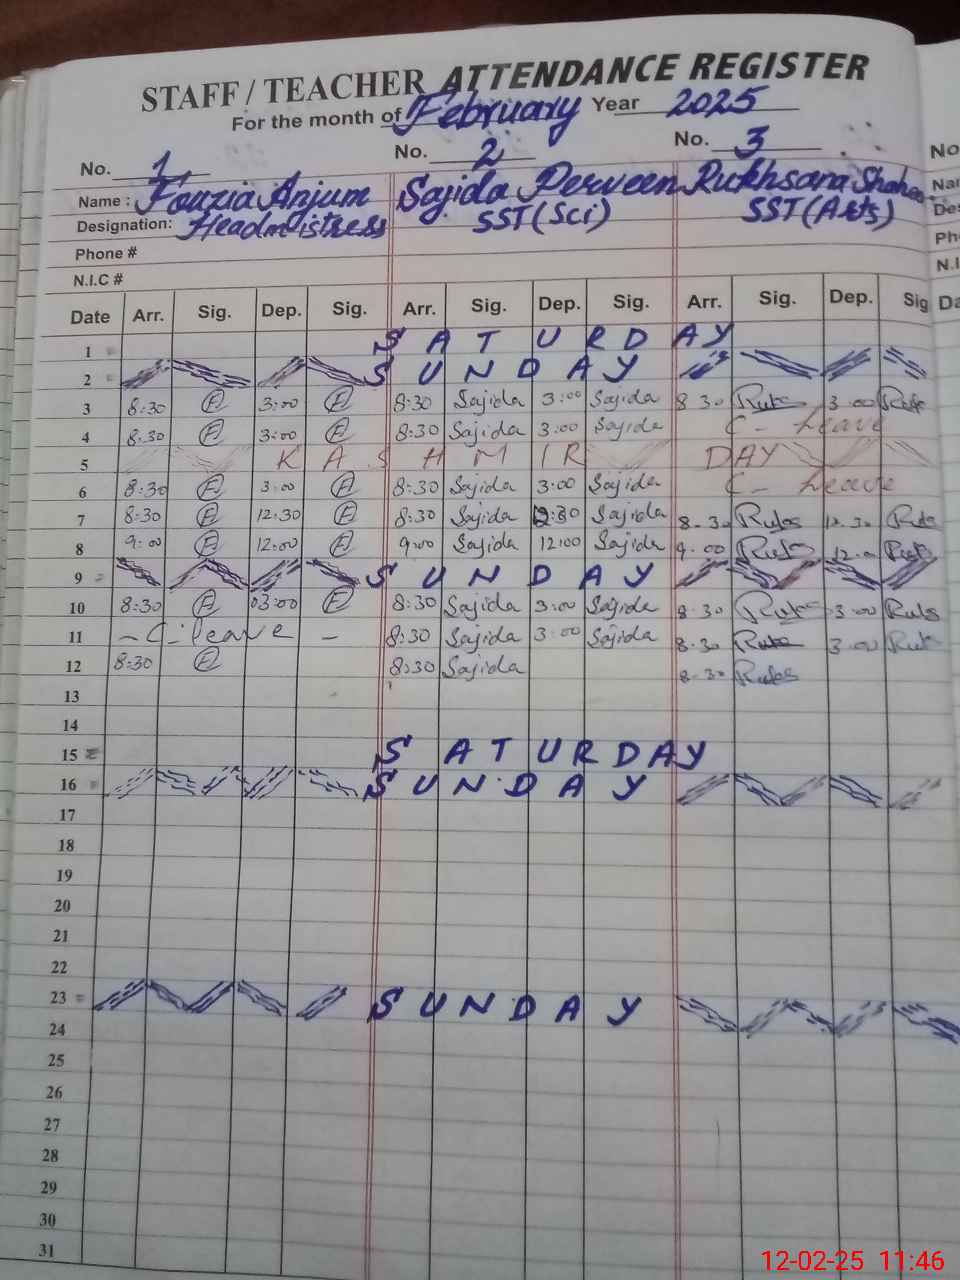 STAFF / TEACHER ATTENDANCE REGISTER
For the month of February Year 2025
No. 1 No. 2 No. 3 No
Name : Fouzia Anjum Sajida Perveen Rukhsana Nar
Designation: Headmistress SST (Sci) SST (Arts) De
Phone # Ph
N.I.C # N.I
Date Arr. Sig. Dep. Sig. Arr. Sig. Dep. Sig. Arr. Sig. Dep. Sig Da
1 SATURDAY
2 SUNDAY
3 8:30 F 3:00 F 8:30 Sajida 3:00 Sajida 8 30 3 00
4 8:30 F 3:00 F 8:30 Sajida 3:00 Sajida C - Leave
5 KASHMIR DAY
6 8:30 F 3:00 F 8:30 Sajida 3:00 Sajida C - Leave
7 8:30 F 12:30 F 8:30 Sajida 12:30 Sajida 8-30 12 30
8 9:00 F 12:00 F 9:00 Sajida 12:00 Sajida 9-00
9 SUNDAY
10 8:30 F 03:00 F 8:30 Sajida 3:00 Sajida 8 30 3 00
11 - C-leave - 8:30 Sajida 3:00 Sajida 8-30 3 00
12 8:30 F 8:30 Sajida 8-30
13
14
15 SATURDAY
16 SUNDAY
17
18
19
20
21
22
23 SUNDAY
24
25
26
27
28
29
30
31
12-02-25 11:46